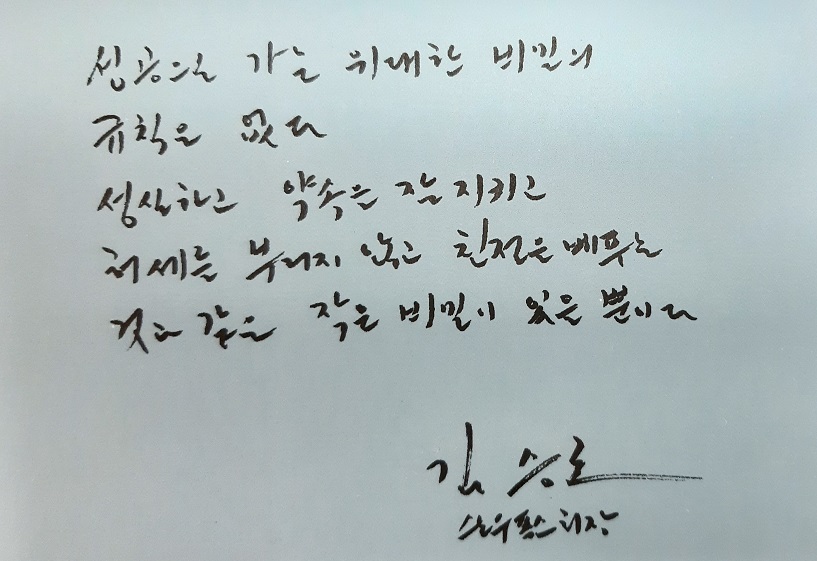 성공으로 가는 위대한 비밀의
규칙은 없다
성실하고 약속은 잘 지키고
허세를 부리지 않고 친절을 베푸는
것과 같은 작은 비밀이 있을 뿐이다
김승호
스노우폭스 회장